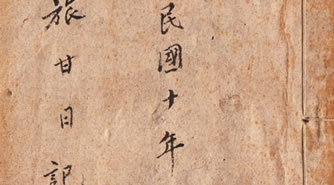 民國十年
旅甘日記